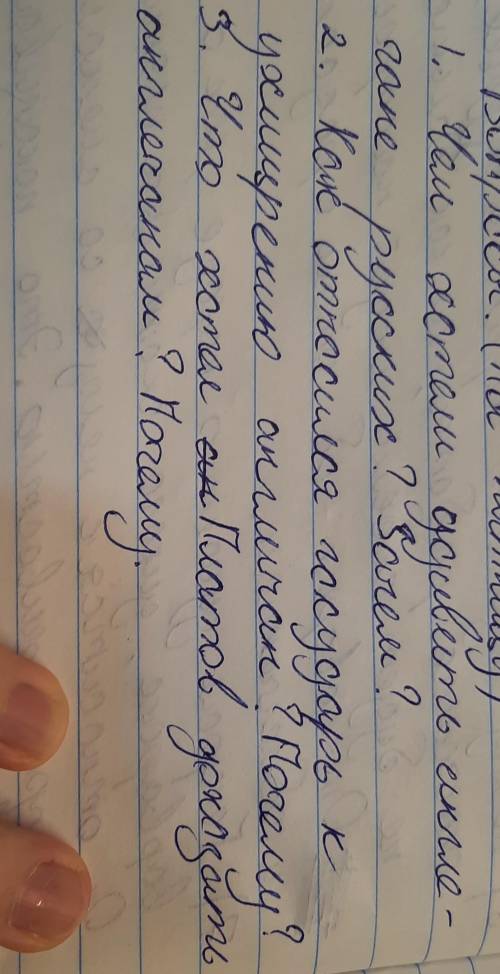 Вопросы. (На пятницу)
1. Чем хотели удивить англе-
чане русских? Зачем?
2. Как относился государь к
ухищрению англичан? Почему?
3. Что хотел Платов доказать
англечанам? Почему.